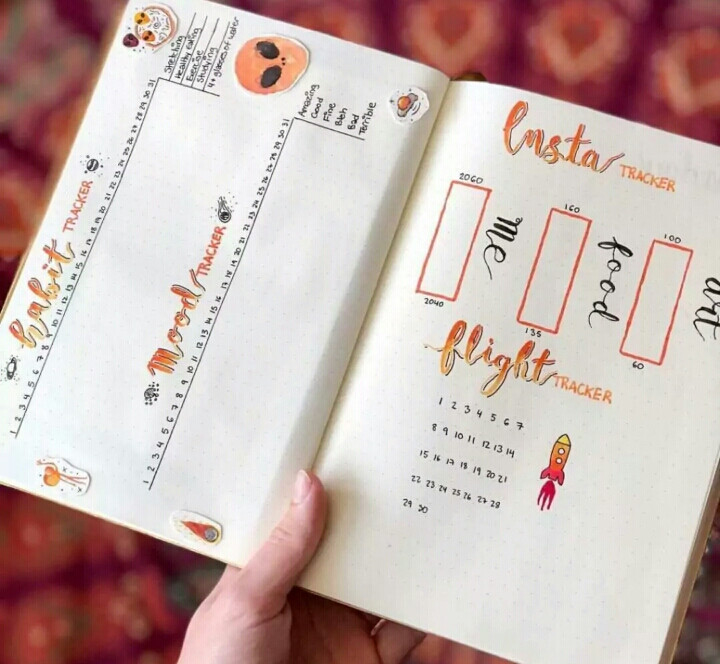 Healthy Eating
Exercise
Studying
4+ glasses of water
habit TRACKER
1 2 3 4 5 6 7 8 9 10 11 12 13 14 15 16 17 18 19 20 21 22 23 24 25 26 27 28 29 30 31
Amazing
Good
Fine
Bad
Terrible
Mood TRACKER
1 2 3 4 5 6 7 8 9 10 11 12 13 14 15 16 17 18 19 20 21 22 23 24 25 26 27 28 29 30 31
Insta TRACKER
2060
me
2040
160
food
135
100
art
60
flight TRACKER
1 2 3 4 5 6 7
8 9 10 11 12 13 14
15 16 17 18 19 20 21
22 23 24 25 26 27 28
29 30